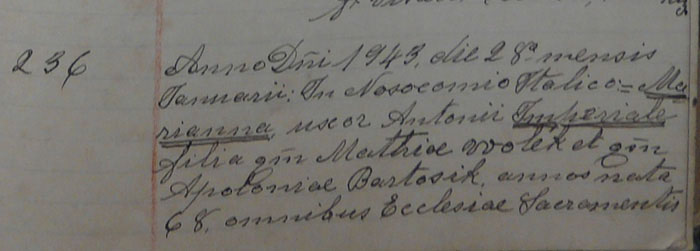 236 Anno Dñi 1943, die 28ª mensis
Januarii: In Nosocomio Italico = Ma
rianna, uxor Antonii Imperiale
filia qm̃ Mathiae Wolek et qm̃
Apoloniae Bartosik, annos nata
68, omnibus Ecclesiae Sacramentis